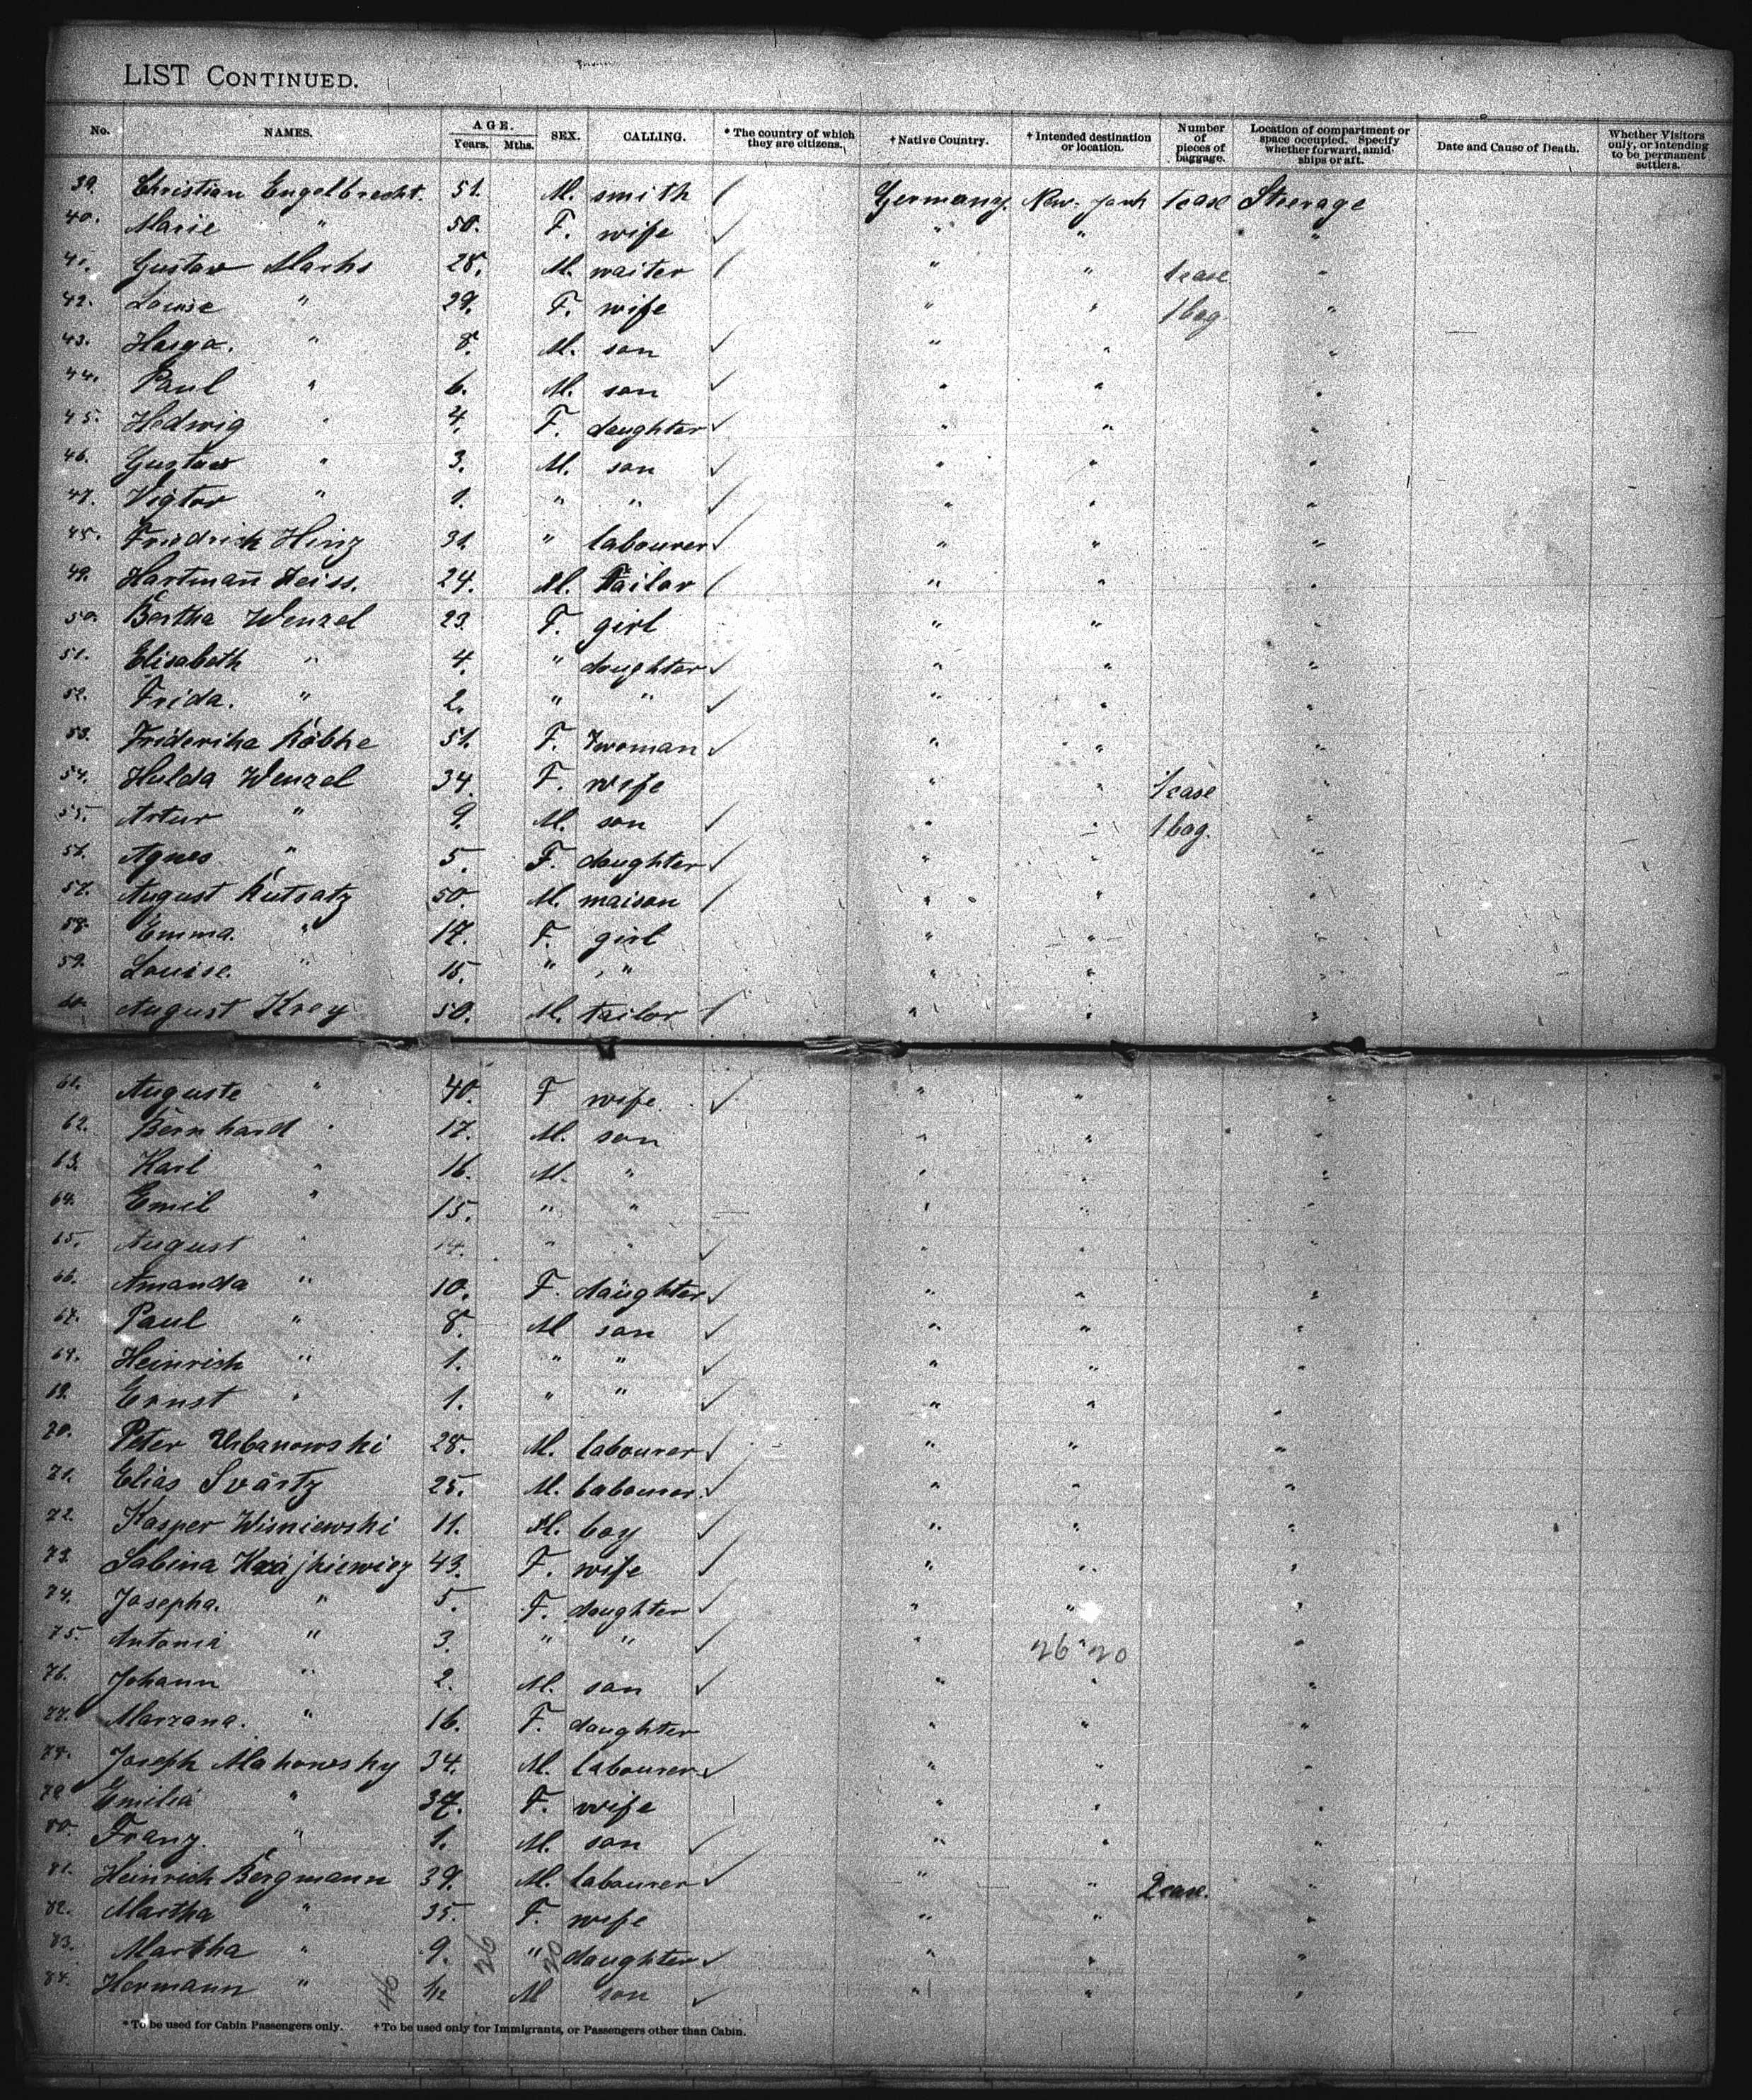 LIST CONTINUED.
No. NAMES. AGE. Years. Mths. SEX. CALLING. * The country of which they are citizens. † Native Country. † Intended destination or location. Number of pieces of baggage. Location of compartment or space occupied. Specify whether forward, amidships or aft. Date and Cause of Death. Whether Visitors only, or intending to be permanent settlers.
39. Christian Engelbrecht. 51. M. smith / Germany. New-york 1 case Steerage
40. Marie " 50. F. wife ✓ " " "
41. Gustav Marks 28. M. waiter / " " 1 case "
42. Louise " 29. F. wife " " 1 bag. "
43. " 8. M. son ✓ " " "
44. Paul " 6. M. son ✓ " " "
45. Hedwig " 4. F. daughter ✓ " " "
46. Gustav " 3. M. son ✓ " " "
47. Vigtor " 1. " " ✓ " " "
48. Friedrich Hinz 31 " labourer ✓ " " "
49. Hartmann 24. M. Tailor / " " "
50. Bertha Wenzel 23. F. girl " " "
51. Elisabeth " 4. " daughter ✓ " " "
52. Frida. " 2. " " ✓ " " "
53. Friderike Köbke 51. F. woman ✓ " " "
54. Hulda Wenzel 34. F. wife " " 1 case "
55. Artur " 9. M. son ✓ " " 1 bag. "
56. Agnes " 5. F. daughter ✓ " " "
57. August Kutsatz 50. M. maison / " " "
58. Emma. " 17. F. girl " " "
59. Louise. " 15. " " " " "
60. August Krey 50. M. tailor / " " "
61. Auguste " 40. F wife. ✓ " " "
62. Bernhard " 17. M. son " " "
63. Karl " 16. M. " " " "
64. Emil " 15. " " " " "
65. August " 14. " " ✓ " " "
66. Amanda " 10. F. daughter ✓ " " "
67. Paul " 8. M son ✓ " " "
68. Heinrich " 1. " " ✓ " " "
69. Ernst " 1. " " ✓ " " "
70. Peter Urbanowski 28. M. labourer ✓ " " "
71. Elias Svartz 25. M. labourer. ✓ " " "
72. Kasper Wisniewski 11. M. boy ✓ " " "
73. Sabina 43. F. wife ✓ " " "
74. Josepha. " 5. F. daughter ✓ " " "
75. Antonia " 3. " " ✓ " 26 " 20 "
76. Johann " 2. M. son ✓ " " "
77. Marzana. " 16. F. daughter " " "
78. Joseph Mahowsky 34. M. labourer ✓ " " "
79. Emilia " 37. F. wife " " "
80. Franz. " 1. M. son ✓ " " "
81. Heinrich Bergmann 39. M. labourer ✓ " " 2 case. "
82. Martha " 35. F. wife " " "
83. Martha " 9. 26 " 20 daughter ✓ " " "
84. Hermann " 46 1/12 M son ✓ " " "
* To be used for Cabin Passengers only. † To be used only for Immigrants, or Passengers other than Cabin.